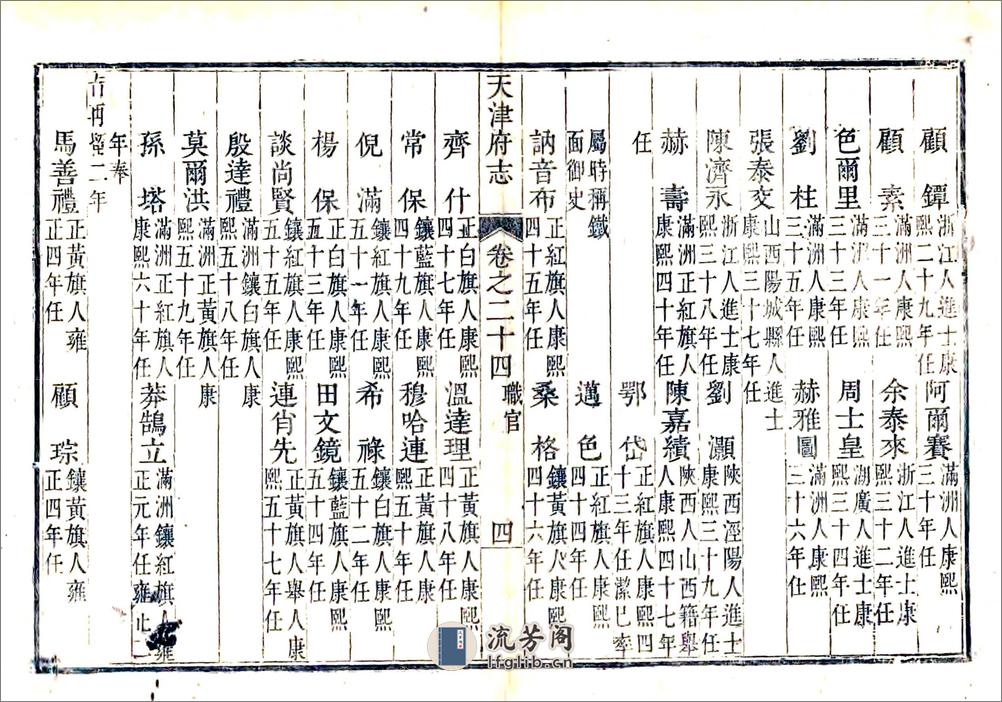 顧鐔 浙江人進士康熙二十九年任 阿爾賽 滿洲人康熙三十年任
顧素 滿洲人康熙三十一年任 余泰來 浙江人進士康熙三十二年任
色爾里 滿洲人康熙三十三年任 周士皇 湖廣人進士康熙三十四年任
劉柱 滿洲人康熙三十五年任 赫雅圖 滿洲人康熙三十六年任
張泰交 山西陽城縣人進士康熙三十七年任
陳濟永 浙江人進士康熙三十八年任 劉灝 陝西涇陽人進士康熙三十九年任
赫壽 滿洲正紅旗人康熙四十年任 陳嘉績 陝西人山西籍舉人康熙四十七年
任 鄂岱 正紅旗人康熙四十三年任潔己率
屬時稱鐵面御史 邁色 正紅旗人康熙四十四年任
訥音布 正紅旗人康熙四十五年任 桑格 鑲黃旗人康熙四十六年任
天津府志 卷之二十四 職官 四
齊什 正白旗人康熙四十七年任 溫達理 正黃旗人康熙四十八年任
常保 鑲藍旗人康熙四十九年任 穆哈連 正黃旗人康熙五十年任
倪滿 鑲紅旗人康熙五十一年任 希祿 鑲白旗人康熙五十二年任
楊保 正白旗人康熙五十三年任 田文鏡 鑲藍旗人康熙五十四年任
談尚賢 鑲紅旗人康熙五十五年任 連肖先 正黃旗人舉人康熙五十七年任
殷達禮 滿洲鑲白旗人康熙五十八年任
莫爾洪 滿洲正黃旗人康熙五十九年任
孫塔 滿洲正紅旗人康熙六十年任 莽鵠立 滿洲鑲紅旗人雍正元年任雍正二
年奉
旨再留二年
馬善禮 正黃旗人雍正四年任 顧琮 鑲黃旗人雍正四年任
流芳阁
lfglib.cn